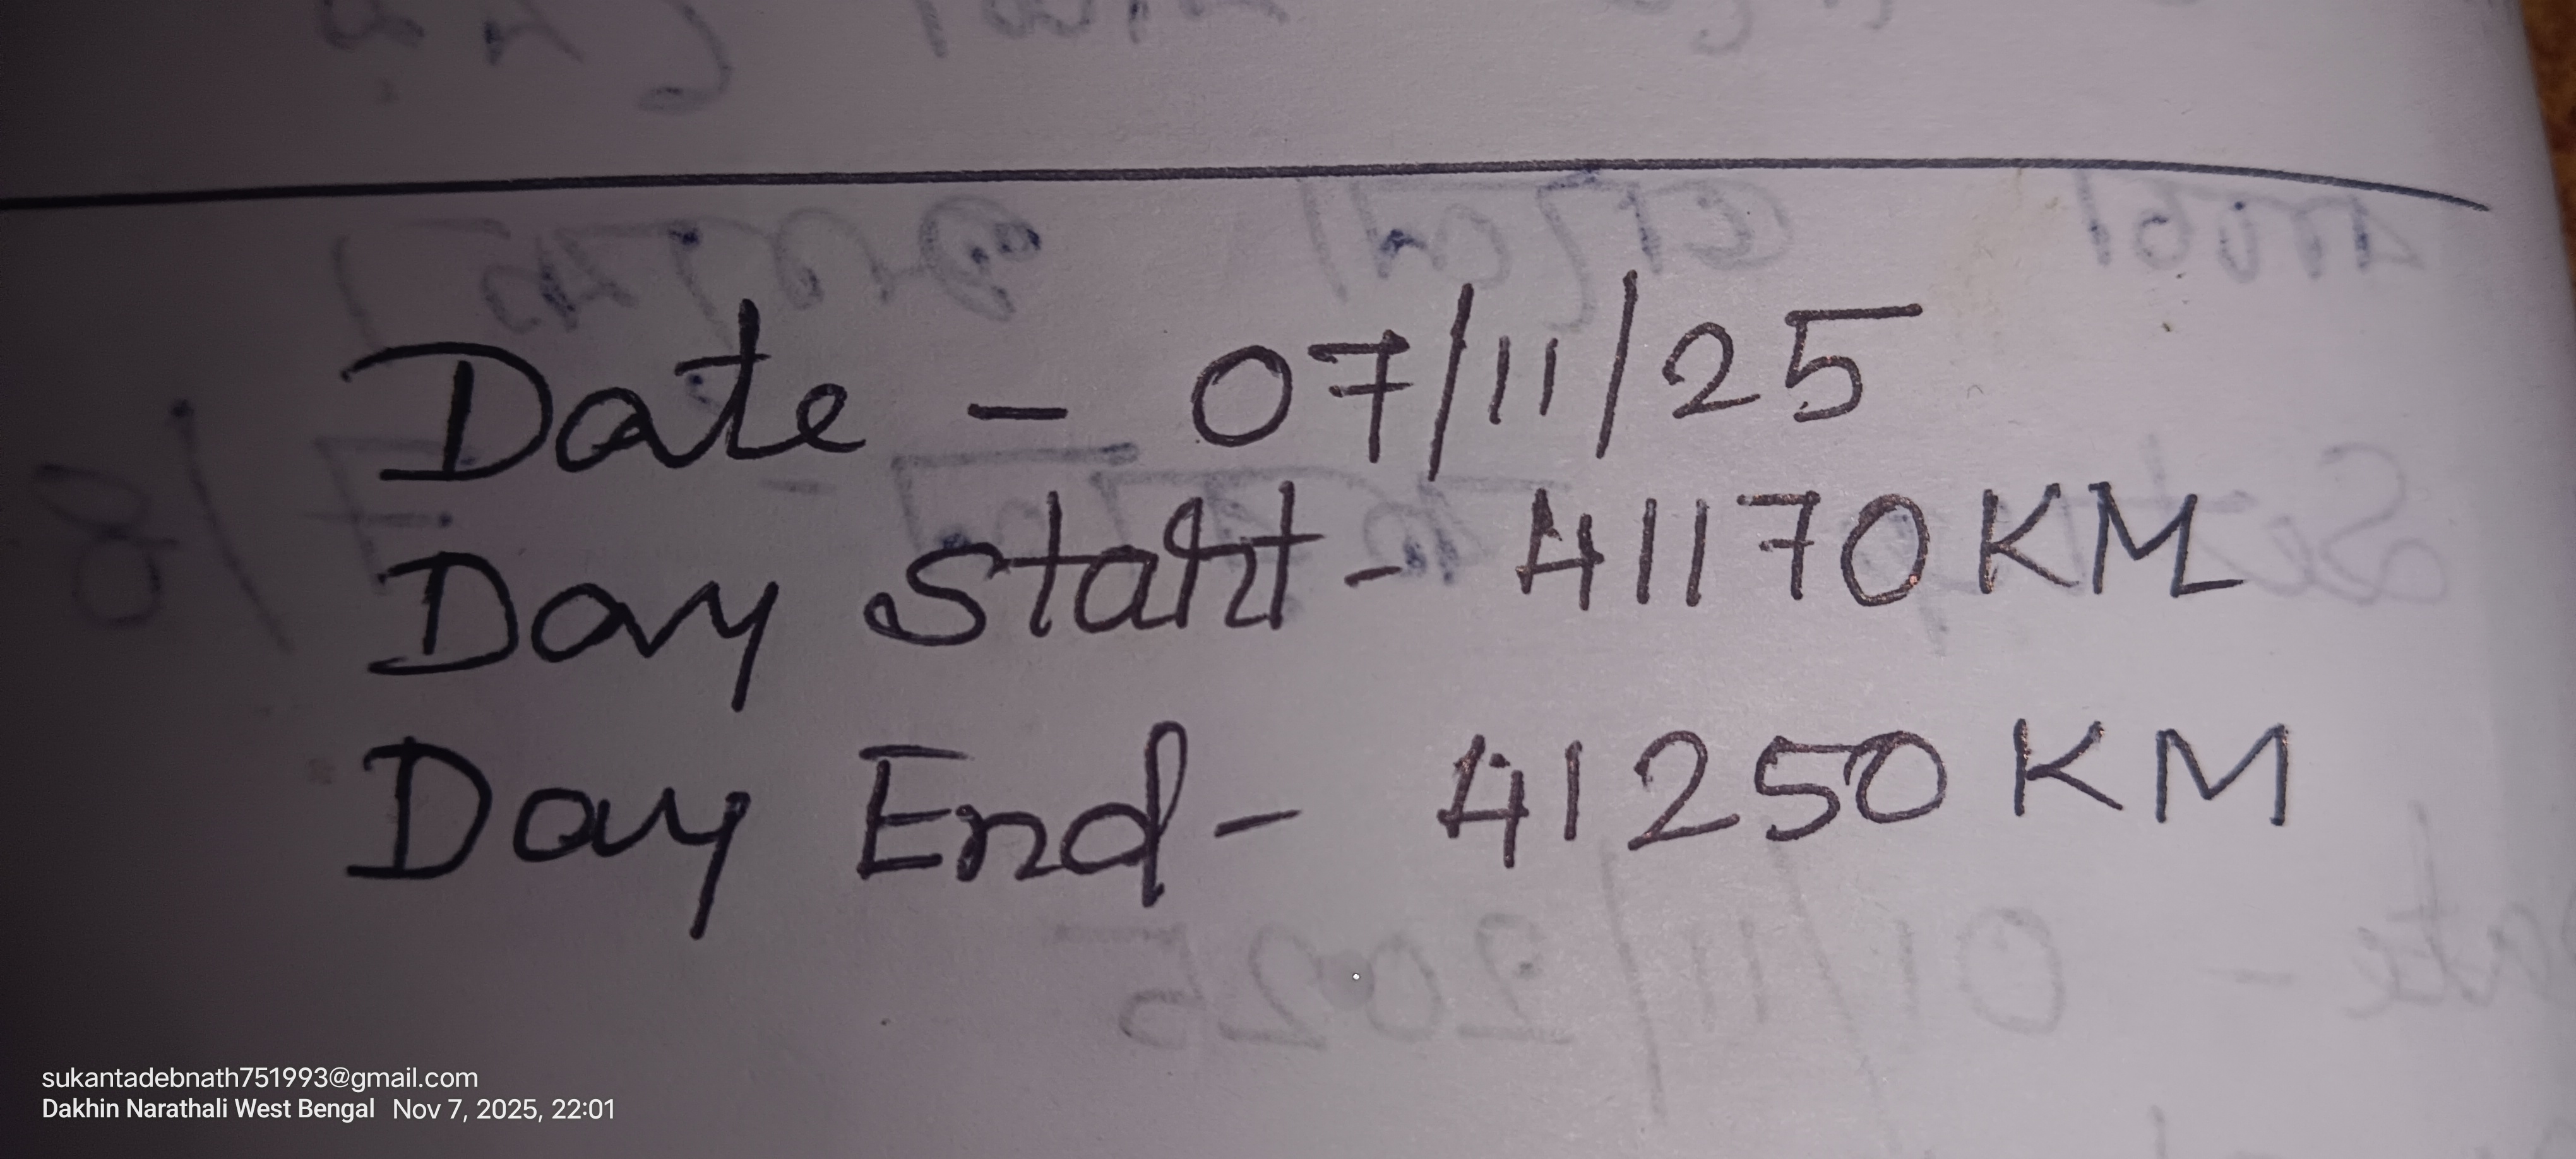 Date - 07/11/25
Day Start - 41170 KM
Day End - 41250 KM
sukantadebnath751993@gmail.com
Dakhin Narathali West Bengal Nov 7, 2025, 22:01